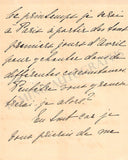 ce printemps je serai
à Paris à partir des tout
premiers jours d'avril
pour y chanter dans de
différentes circonstances
Peut-être vous y rencon-
trerai-je alors?
En tout cas je
vous prierais de me